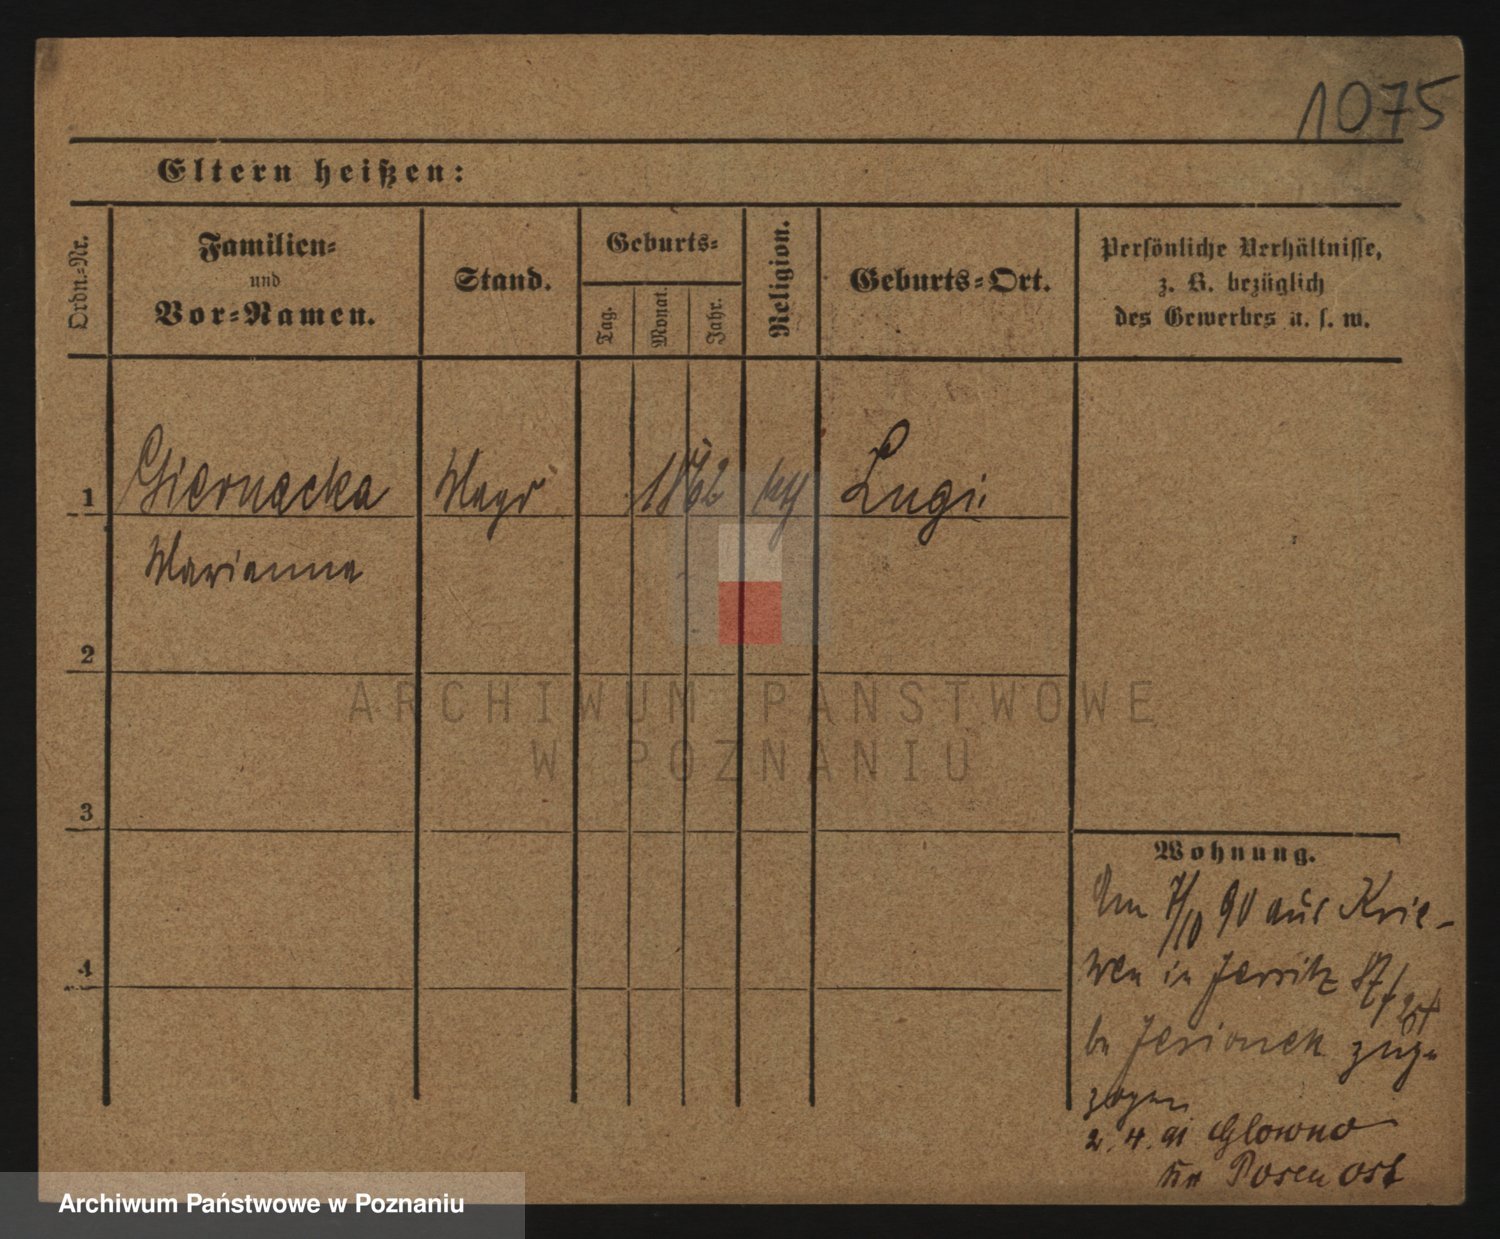 1075
Eltern heißen:
Ordn.-Nr.
Familien-
und
Vor-Namen.
Stand.
Geburts-
Tag.
Monat.
Jahr.
Religion.
Geburts-Ort.
Persönliche Verhältnisse,
z. B. bezüglich
des Gewerbes u. s. w.
1
Giernacka Magd 1862 Lugi
Marianne
2
ARCHIWUM PAŃSTWOWE
W POZNANIU
3
Wohnung.
Am 7/10 90 aus Krie-
wen in Jersitz 87
bei Jesionek zuge-
zogen
2. 4. 91 Glowno
Kr Posen Ost
4
Archiwum Państwowe w Poznaniu